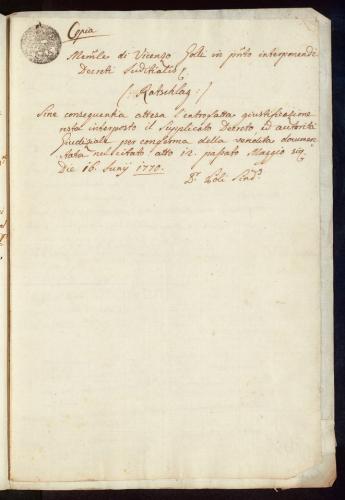 Copia
Mem̃le di Vicenzo Zolli in pñto interponendi
Decreti Judicialis
(: Ratschlag :)
Sine consequentia attesa l'entrofatta giustificazione
resta interposto il supplicato Decreto, ed autorità
Giudiziale per conferma della vendita documen
tata nel citato atto 12. passato Maggio
Die 16. Junij 1770.
Dr. Poli